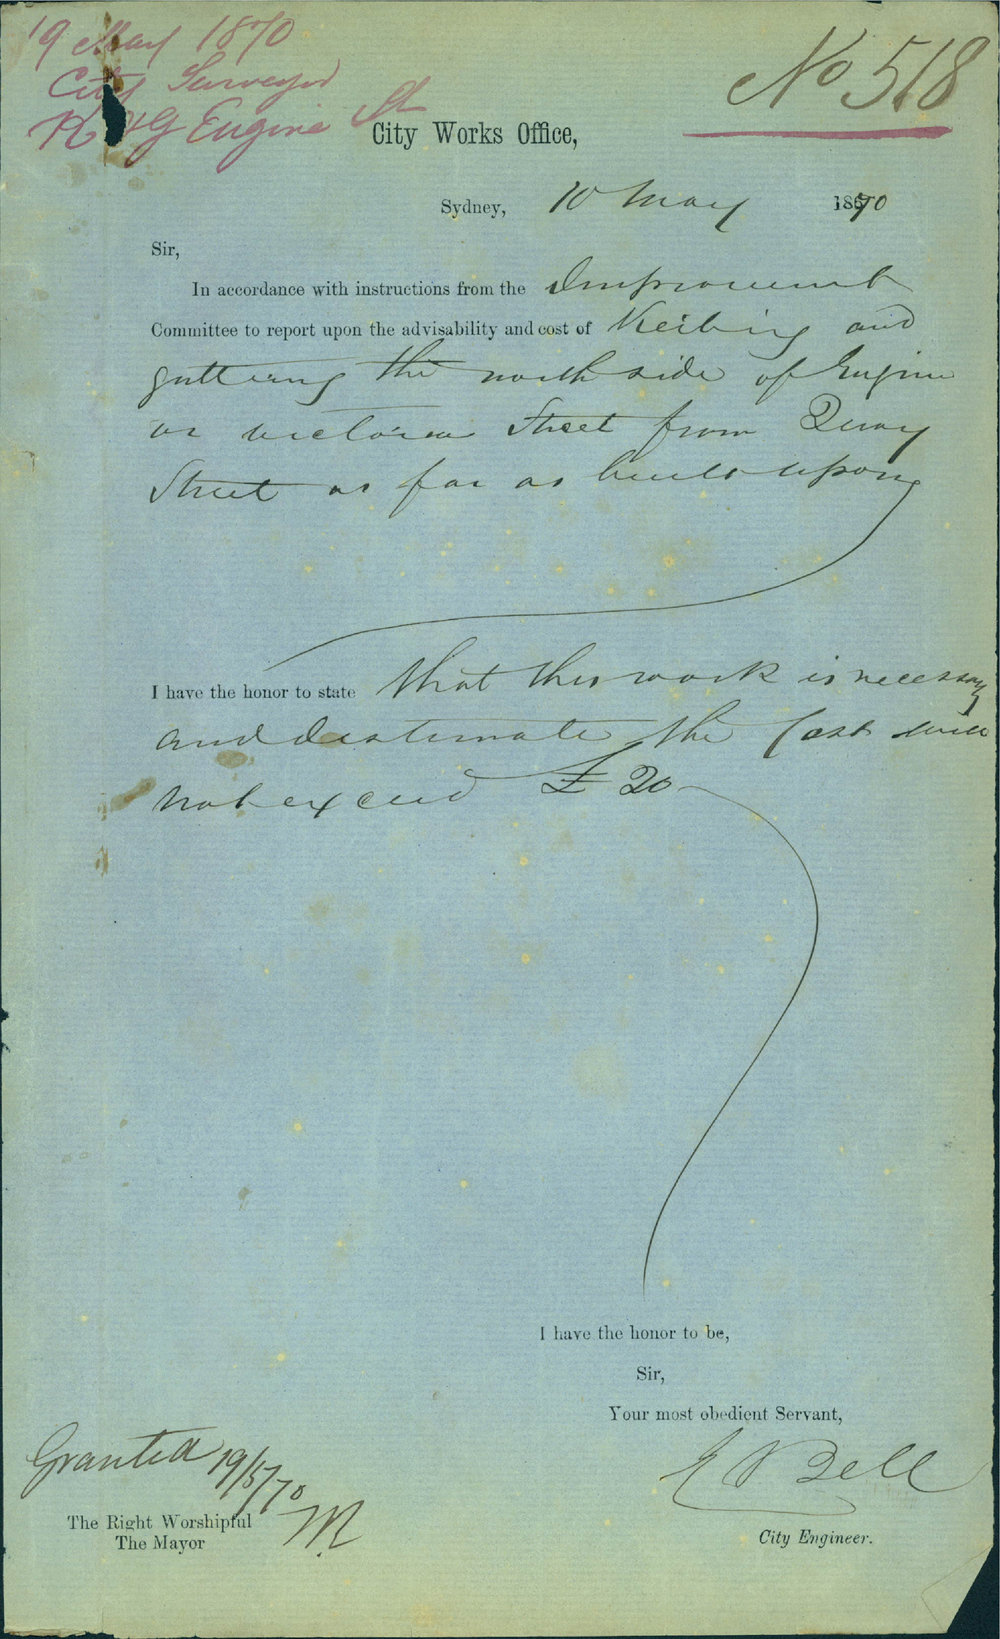 19 May 1870
City Surveyor
K &G Engine St
No 518
City Works Office,
Sydney, 10 May 1870
Sir,
In accordance with instructions from the Improvement
Committee to report upon the advisability and cost of Kerbing and
guttering the north side of Engine
or Victoria Street from Quay
Street as far as built upon
I have the honor to state that this work is necessary
and estimate the Cost will
not exceed £20
I have the honor to be,
Sir,
Your most obedient Servant,
E Bell
City Engineer.
Granted 19/5/70
M
The Right Worshipful
The Mayor